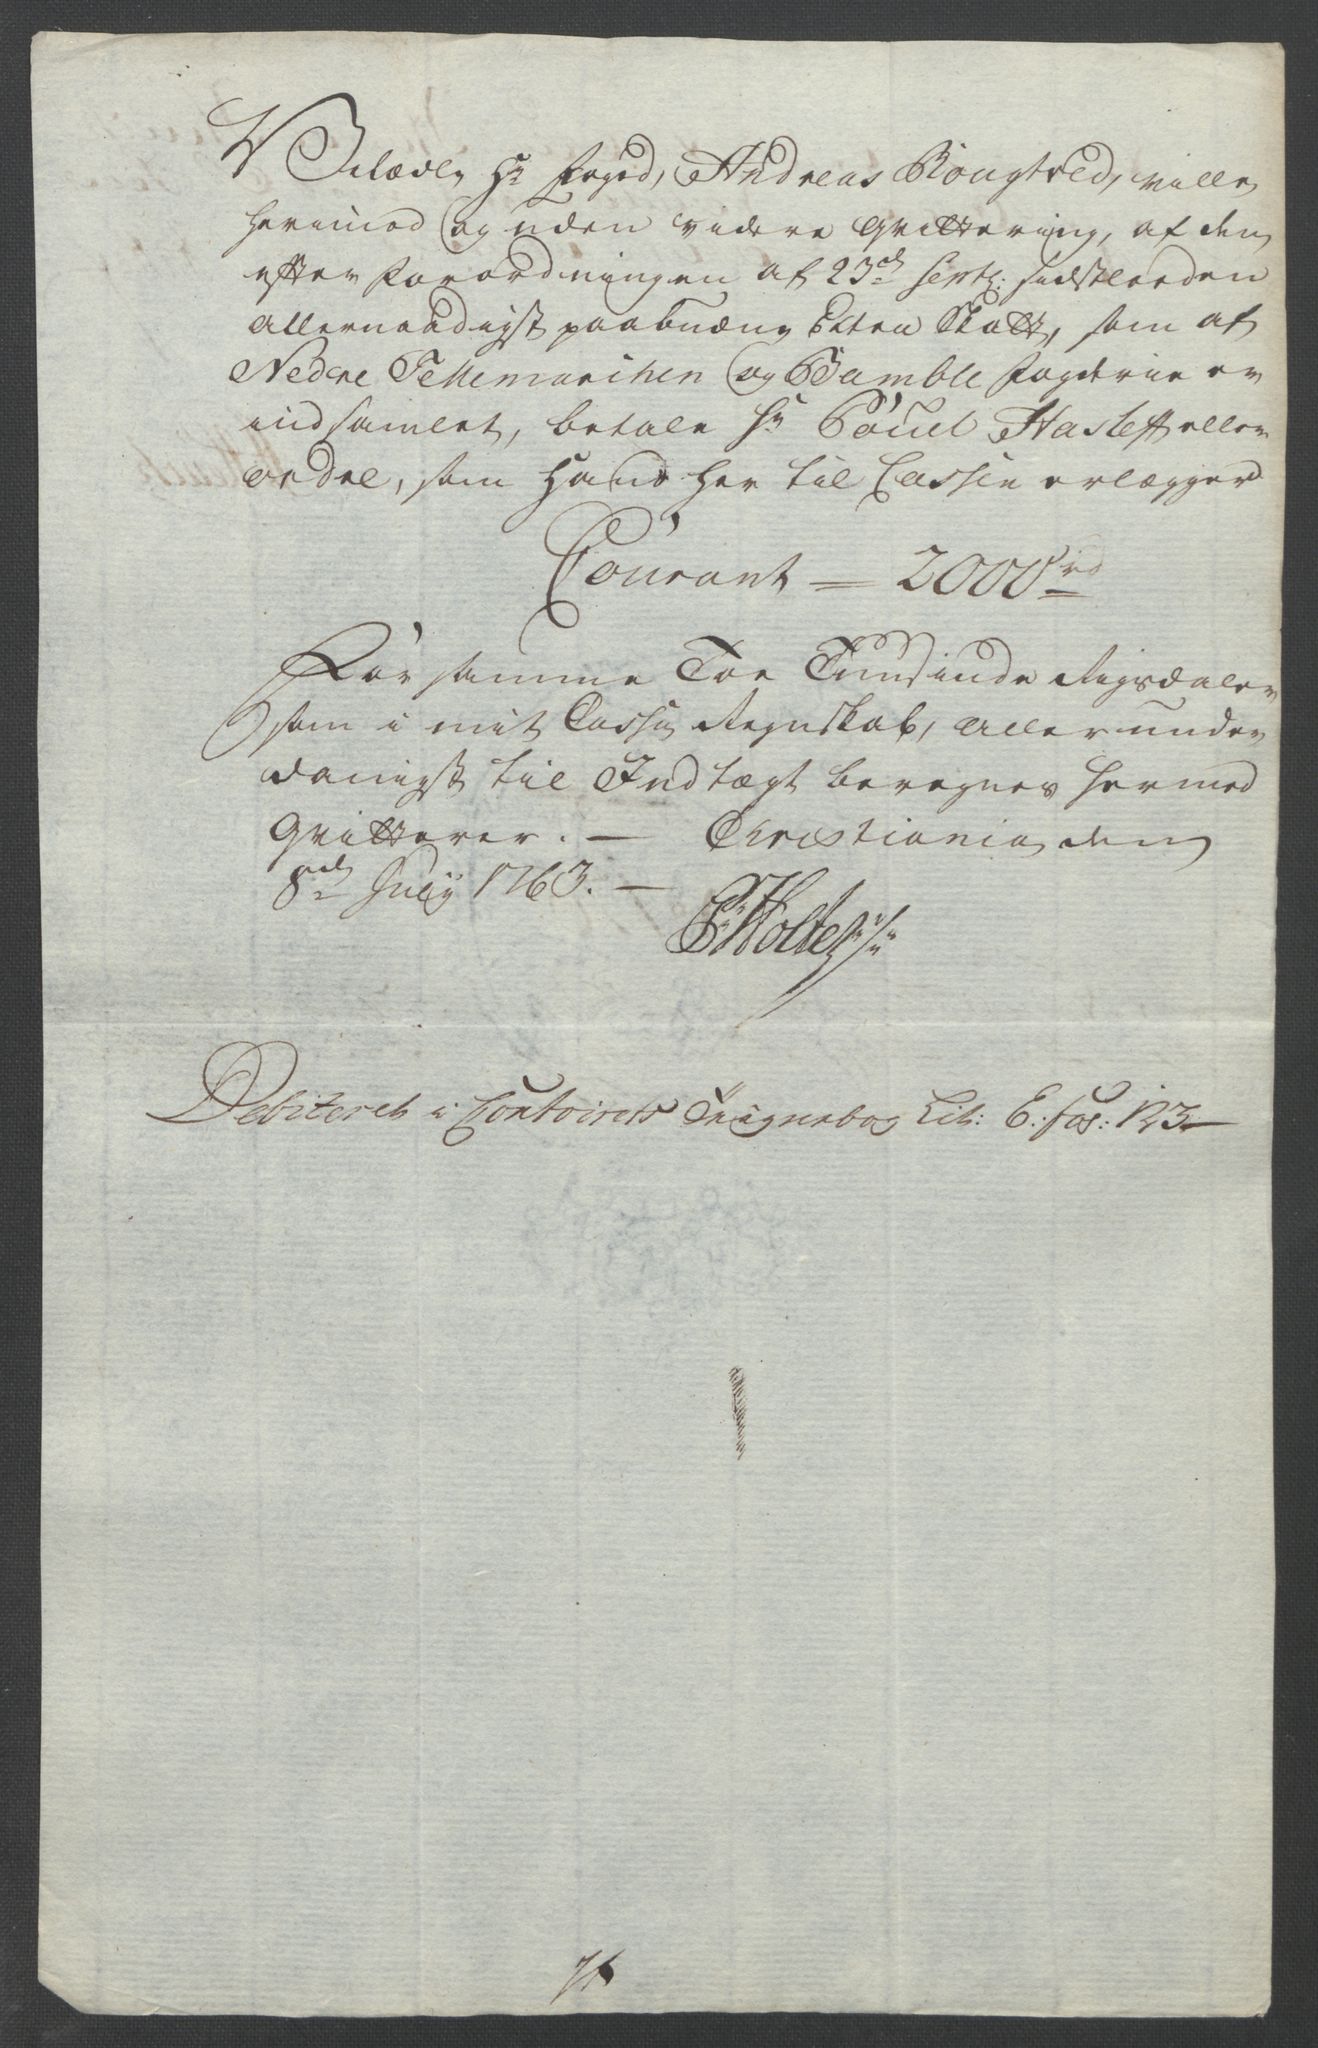 Velædle Hr Foged, Andreas Rougtved, ville
herimod og uden videre Qvittering, af den
efter Forordningen af 23de Septr: sidstleeden
allernaadigst paabudne Extra Skatt, som af
Nedre Tellemarchen og Bamble Fogderie er
indsamlet, betale Hr Poul Hasleff eller
ordre, som hand her til Cassen erlægger
Courant = 2000 rd
For samme Toe Tusinde Rigsdaler
som i mit Casse Regnskab, aller under
danigst til Indtægt beregnes hermed
Qvitterer. — Christiania den
8de Julij 1763. —
P Holter
Debiteret i Contoirets Teignebog Lit: E. fol: 123